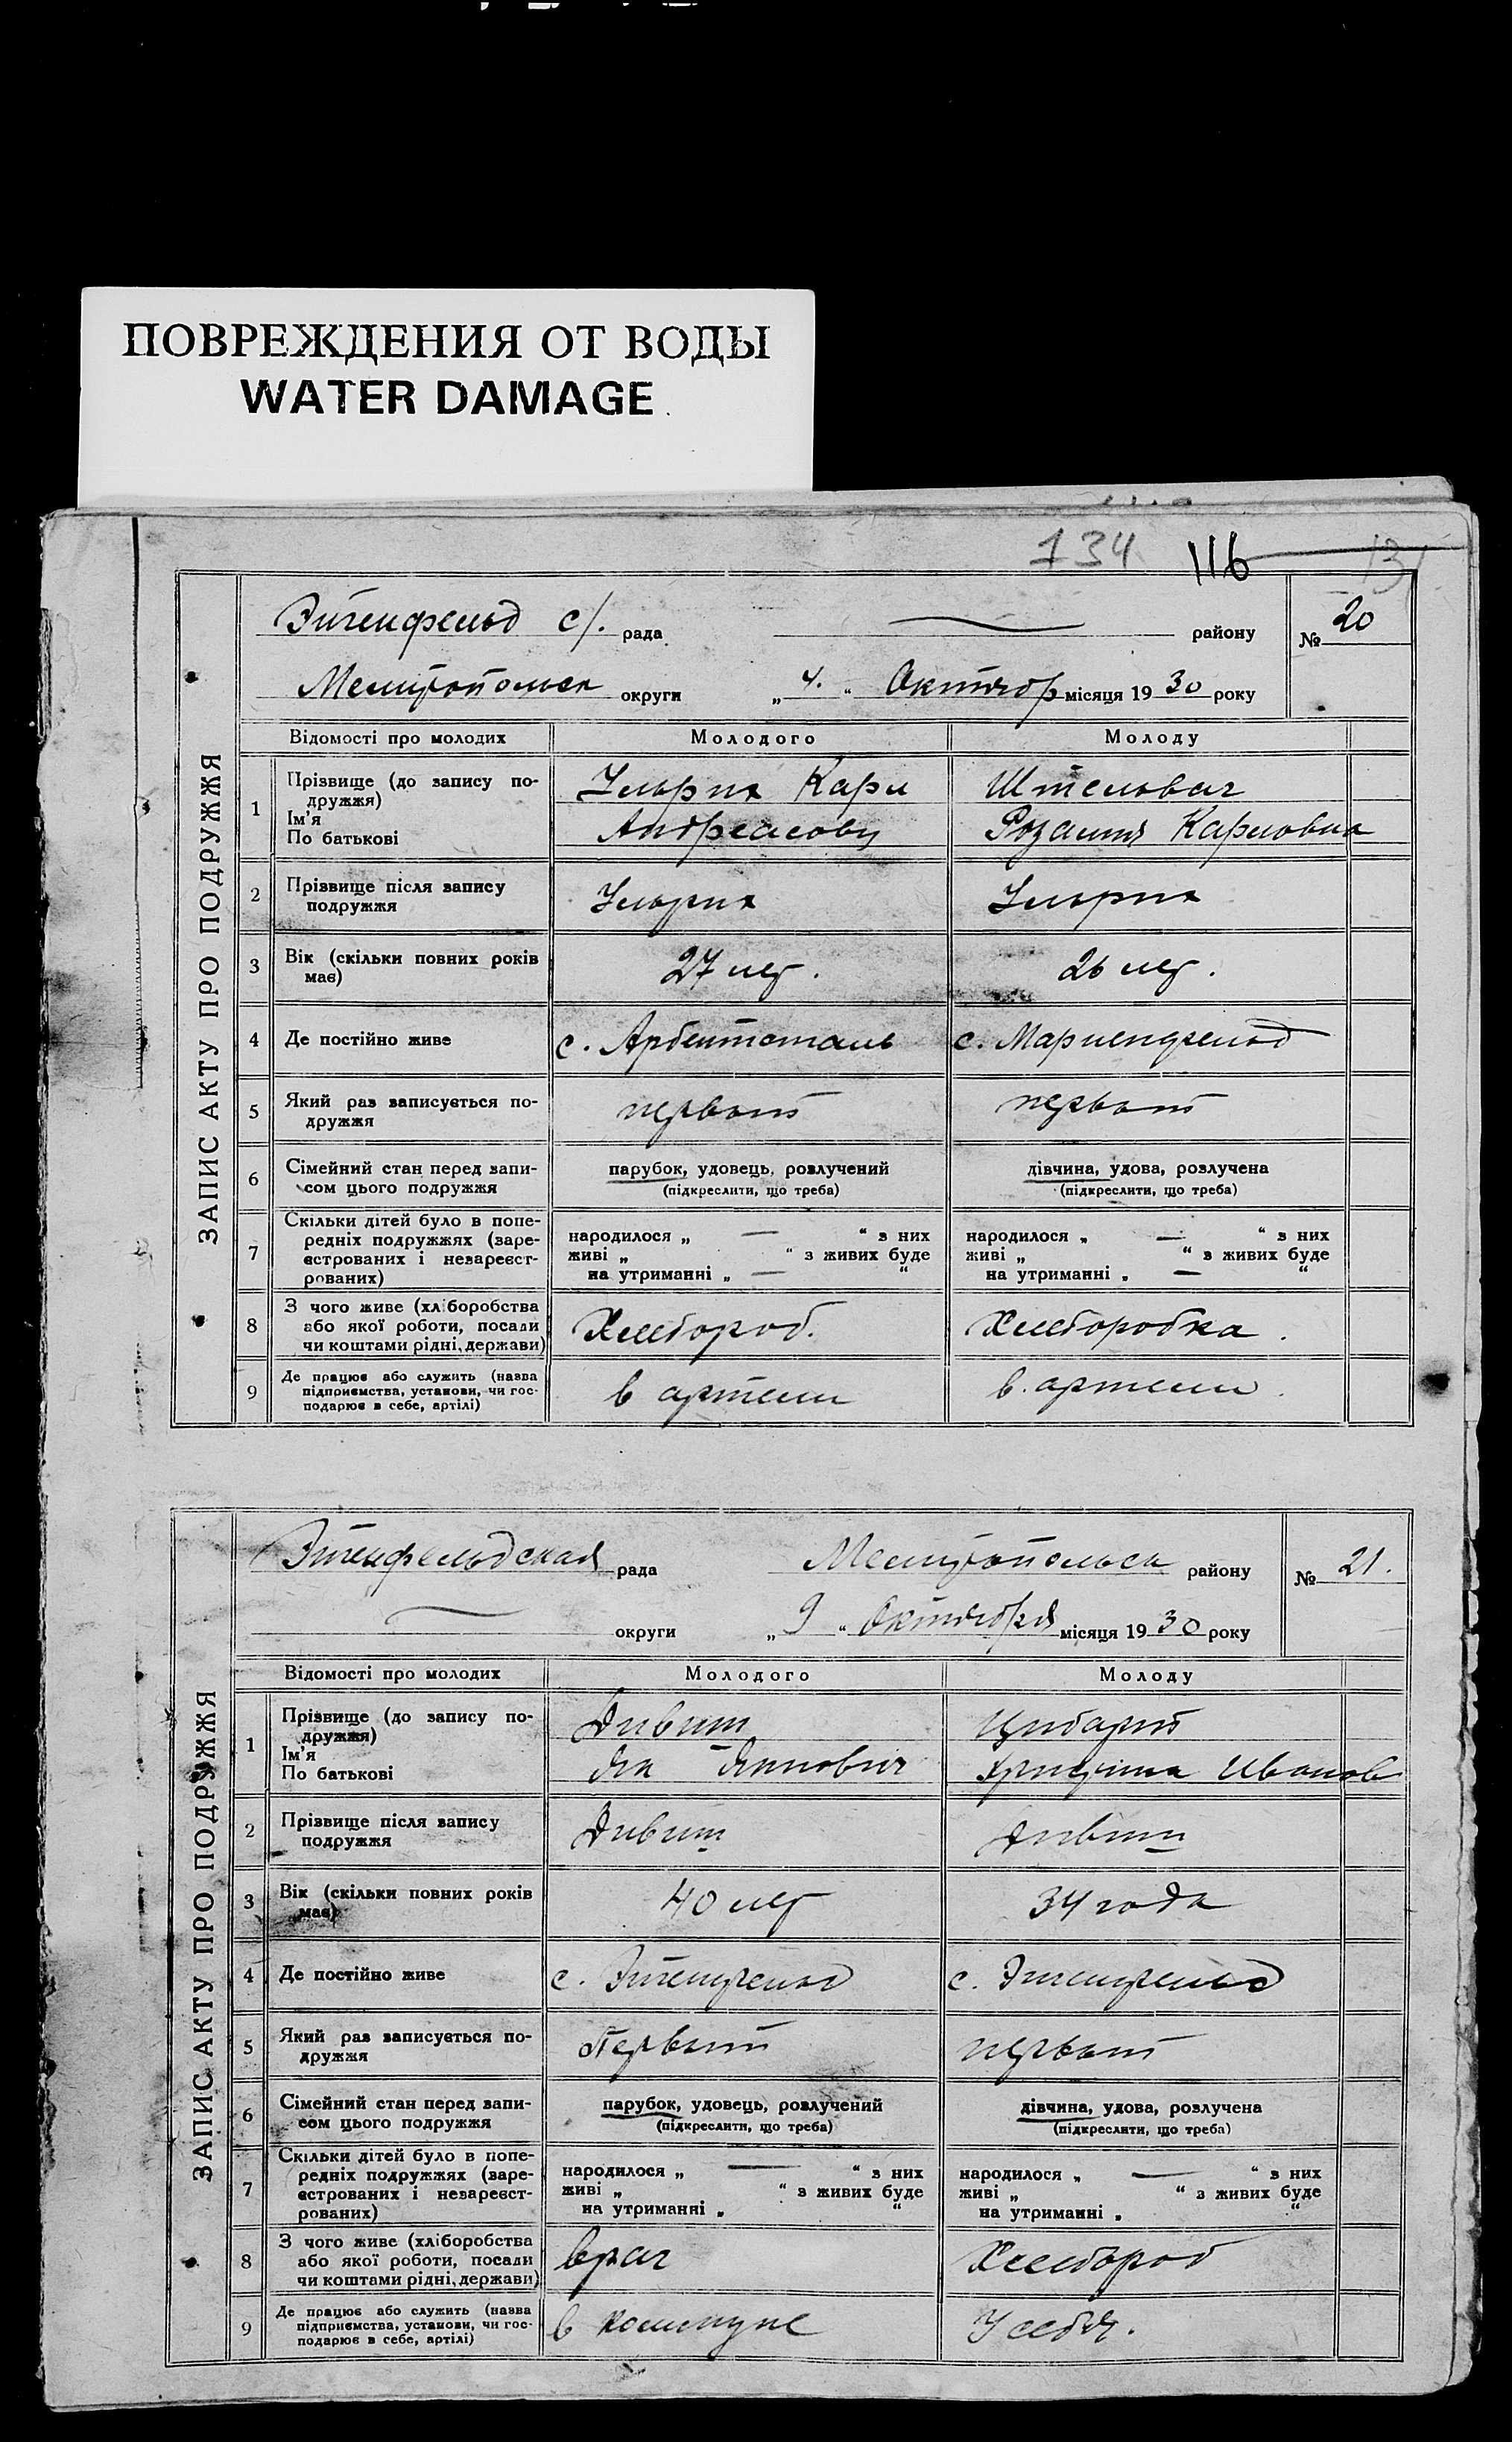 ПОВРЕЖДЕНИЯ ОТ ВОДЫ
WATER DAMAGE
134 116
ЗАПИС АКТУ ПРО ПОДРУЖЖЯ
Эйгенфельд с/. рада — району № 20
Мелитопольск округи „ 4. “ Октябр місяця 19 30 року
Відомості про молодих Молодого Молоду
1 Прізвище (до запису по-
дружжя)
Ім'я
По батькові
Ульрих Карл
Андреасович
Штельвах
Розалия Карловна
2 Прізвище після запису
подружжя
Ульрих Ульрих
3 Вік (скільки повних років
має)
27 лет. 26 лет.
4 Де постійно живе с. Арбейтсталь с. Мариенфельд
5 Який раз записується по-
дружжя
первый первый
6 Сімейний стан перед запи-
сом цього подружжя
парубок, удовець, розлучений
(підкреслити, що треба)
дівчина, удова, розлучена
(підкреслити, що треба)
7 Скільки дітей було в попе-
редніх подружжях (заре-
єстрованих і незареєст-
рованих)
народилося „ — “ з них
живі „ “ з живих буде
на утриманні „ — “
народилося „ — “ з них
живі „ “ з живих буде
на утриманні „ — “
8 З чого живе (хліборобства
або якої роботи, посади
чи коштами рідні, держави)
Хлебороб. Хлеборобка.
9 Де працює або служить (назва
підприємства, установи, чи гос-
подарює в себе, артілі)
в артели в. артели.
ЗАПИС АКТУ ПРО ПОДРУЖЖЯ
Эйгенфельдская рада Мелитопольск району № 21.
— округи „ 9 “ Октября місяця 19 30 року
Відомості про молодих Молодого Молоду
1 Прізвище (до запису по-
дружжя)
Ім'я
По батькові
Дивиш
Ян Янович
Цибарт
Иванов
2 Прізвище після запису
подружжя
Дивиш Дивиш
3 Вік (скільки повних років
має)
40 лет 34 года
4 Де постійно живе с. Эйгенфельд с. Эйгенфельд
5 Який раз записується по-
дружжя
Первый первый
6 Сімейний стан перед запи-
сом цього подружжя
парубок, удовець, розлучений
(підкреслити, що треба)
дівчина, удова, розлучена
(підкреслити, що треба)
7 Скільки дітей було в попе-
редніх подружжях (заре-
єстрованих і незареєст-
рованих)
народилося „ — “ з них
живі „ “ з живих буде
на утриманні „ “
народилося „ — “ з них
живі „ “ з живих буде
на утриманні „ “
8 З чого живе (хліборобства
або якої роботи, посади
чи коштами рідні, держави)
врач Хлебороб
9 Де працює або служить (назва
підприємства, установи, чи гос-
подарює в себе, артілі)
в коммуне У себя.